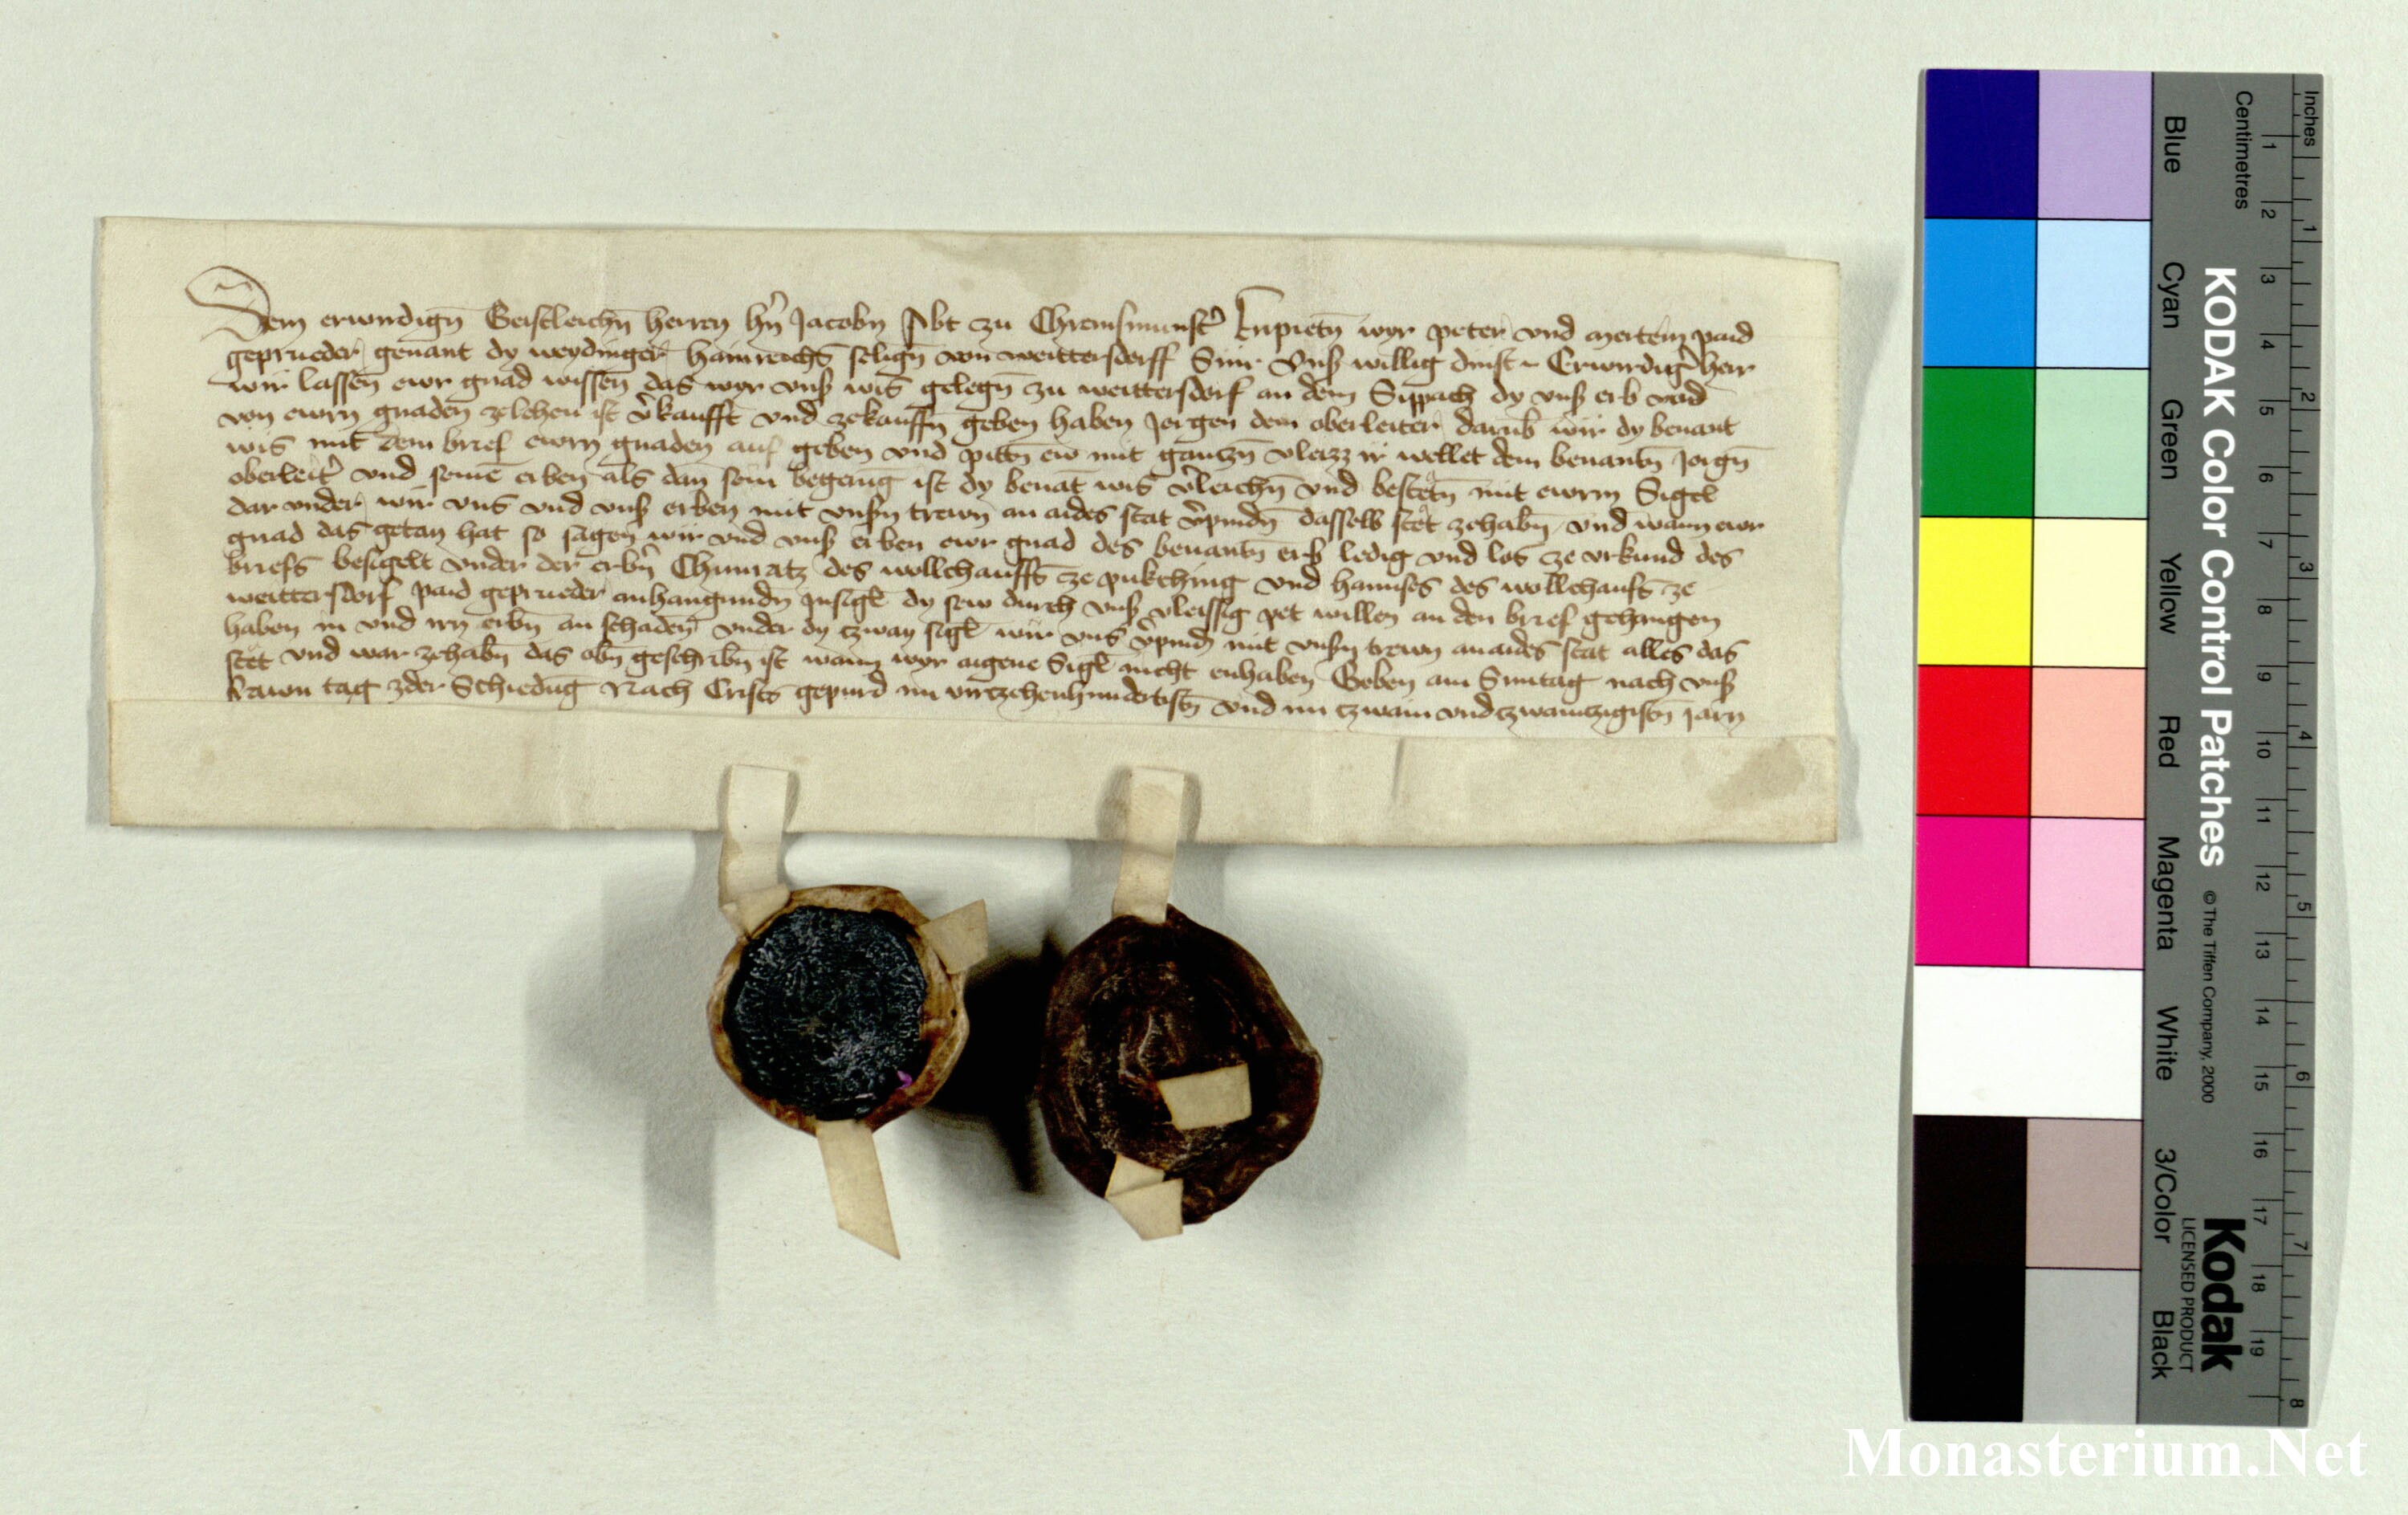 Dem erwirdign̄ Geistleichn̄ herren hn̄ Jacobn Abt zu Chremsmunst' Enpietn̄ wyr peter vnd mertein paid
geprueder genant dy weydinger hainreichs selign̄ von weittersdorff Sün Vnß willig dinst Erwirdig' herr
wir lassen ewr gnad wissen das wyr vnß wis gelegn̄ zu weittersdorf an dem Sippach dy vnß erb vnd
von ewrn gnaden zelehen ist v'kaufft vnd zekauffn̄ geben haben Jorgen dem oberleiter darūb wir dy benant
wis mit dem brief ewrn gnaden auf geben vnd pittn̄ ew mit ganczn̄ vleizz ir wellet dem benantn̄ Jorgn̄
oberleit' vnd seinē erben als dan sein begerūg ist dy benāt wis v'leichn̄ vnd bestetn̄ mit ewrm Sigel
dar vnder wir vns vnd vnß erben mit vnsn trewn an aides stat v'pindn̄ dasselb stet zehabn̄ vnd wann ewr
gnad das getan hat so sagen wir vnd vnß erben ewr gnad des benantn̄ erb ledig vnd los ze vrkund des
briefs besigelt vnder der erbn̄ Chunratz des wollchauffs ze pukching vnd hannses des wollchaufs ze
weittersdorf paid geprueder anhangundn Insigl dy sew durch vnß vleissig pet willen an den brief gehangen
haben in vnd irn erbn̄ an schaden vnder dy czway sigl wir vns v'pindn̄ mit vnsn trewn an aides stat alles das
stet vnd war zehabn̄ das obn̄ geschribn̄ ist wann wyr aigene Sigl nicht enhaben Geben am Suntag nach vnß
frawn tag zder Schiedūg Nach Crists gepurd im virczehenhundertistn̄ vnd im czwain vnd czwainczigistn̄ Jarn
Inches
Centimetres
1 2 3 4 5 6 7 8
1 2 3 4 5 6 7 8 9 10 11 12 13 14 15 16 17 18 19
KODAK Color Control Patches
© The Tiffen Company, 2000
Kodak
LICENSED PRODUCT
Blue
Cyan
Green
Yellow
Red
Magenta
White
3/Color
Black
Monasterium.Net